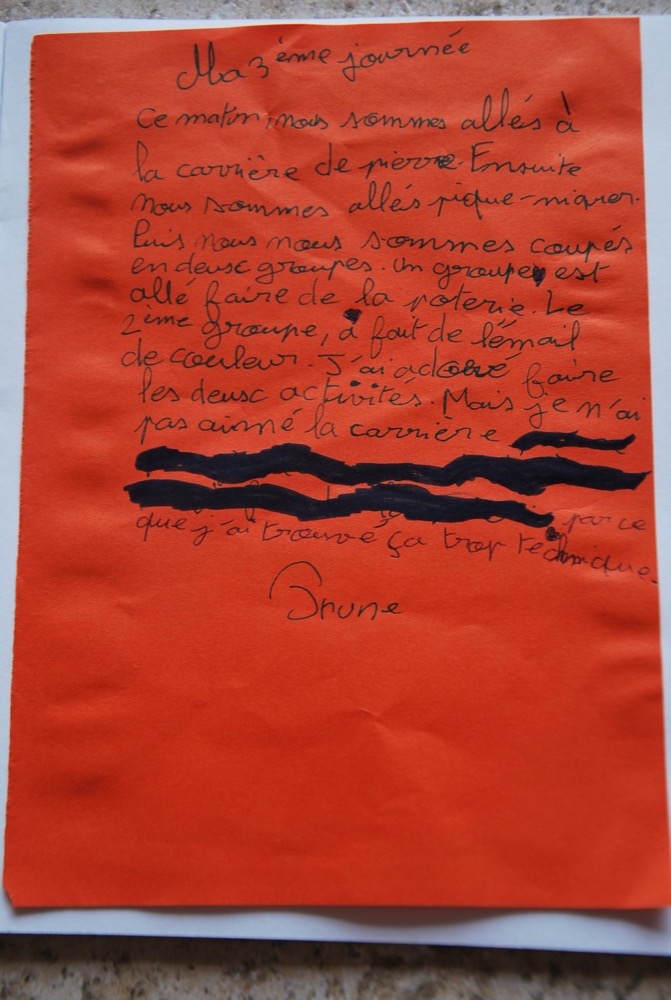 Ma 3ème journée
Ce matin, nous sommes allés à
la carrière de pierre. Ensuite
nous sommes allés pique-niquer.
Puis nous nous sommes coupés
en deusc groupes. Un groupe est
allé faire de la poterie. Le
2ième groupe, a fait de l'émail
de couleur. J'ai adoré faire
les deusc activités. Mais je n'ai
pas aimé la carrière
parce
que j'ai trouvé ça trop technique.
Brune